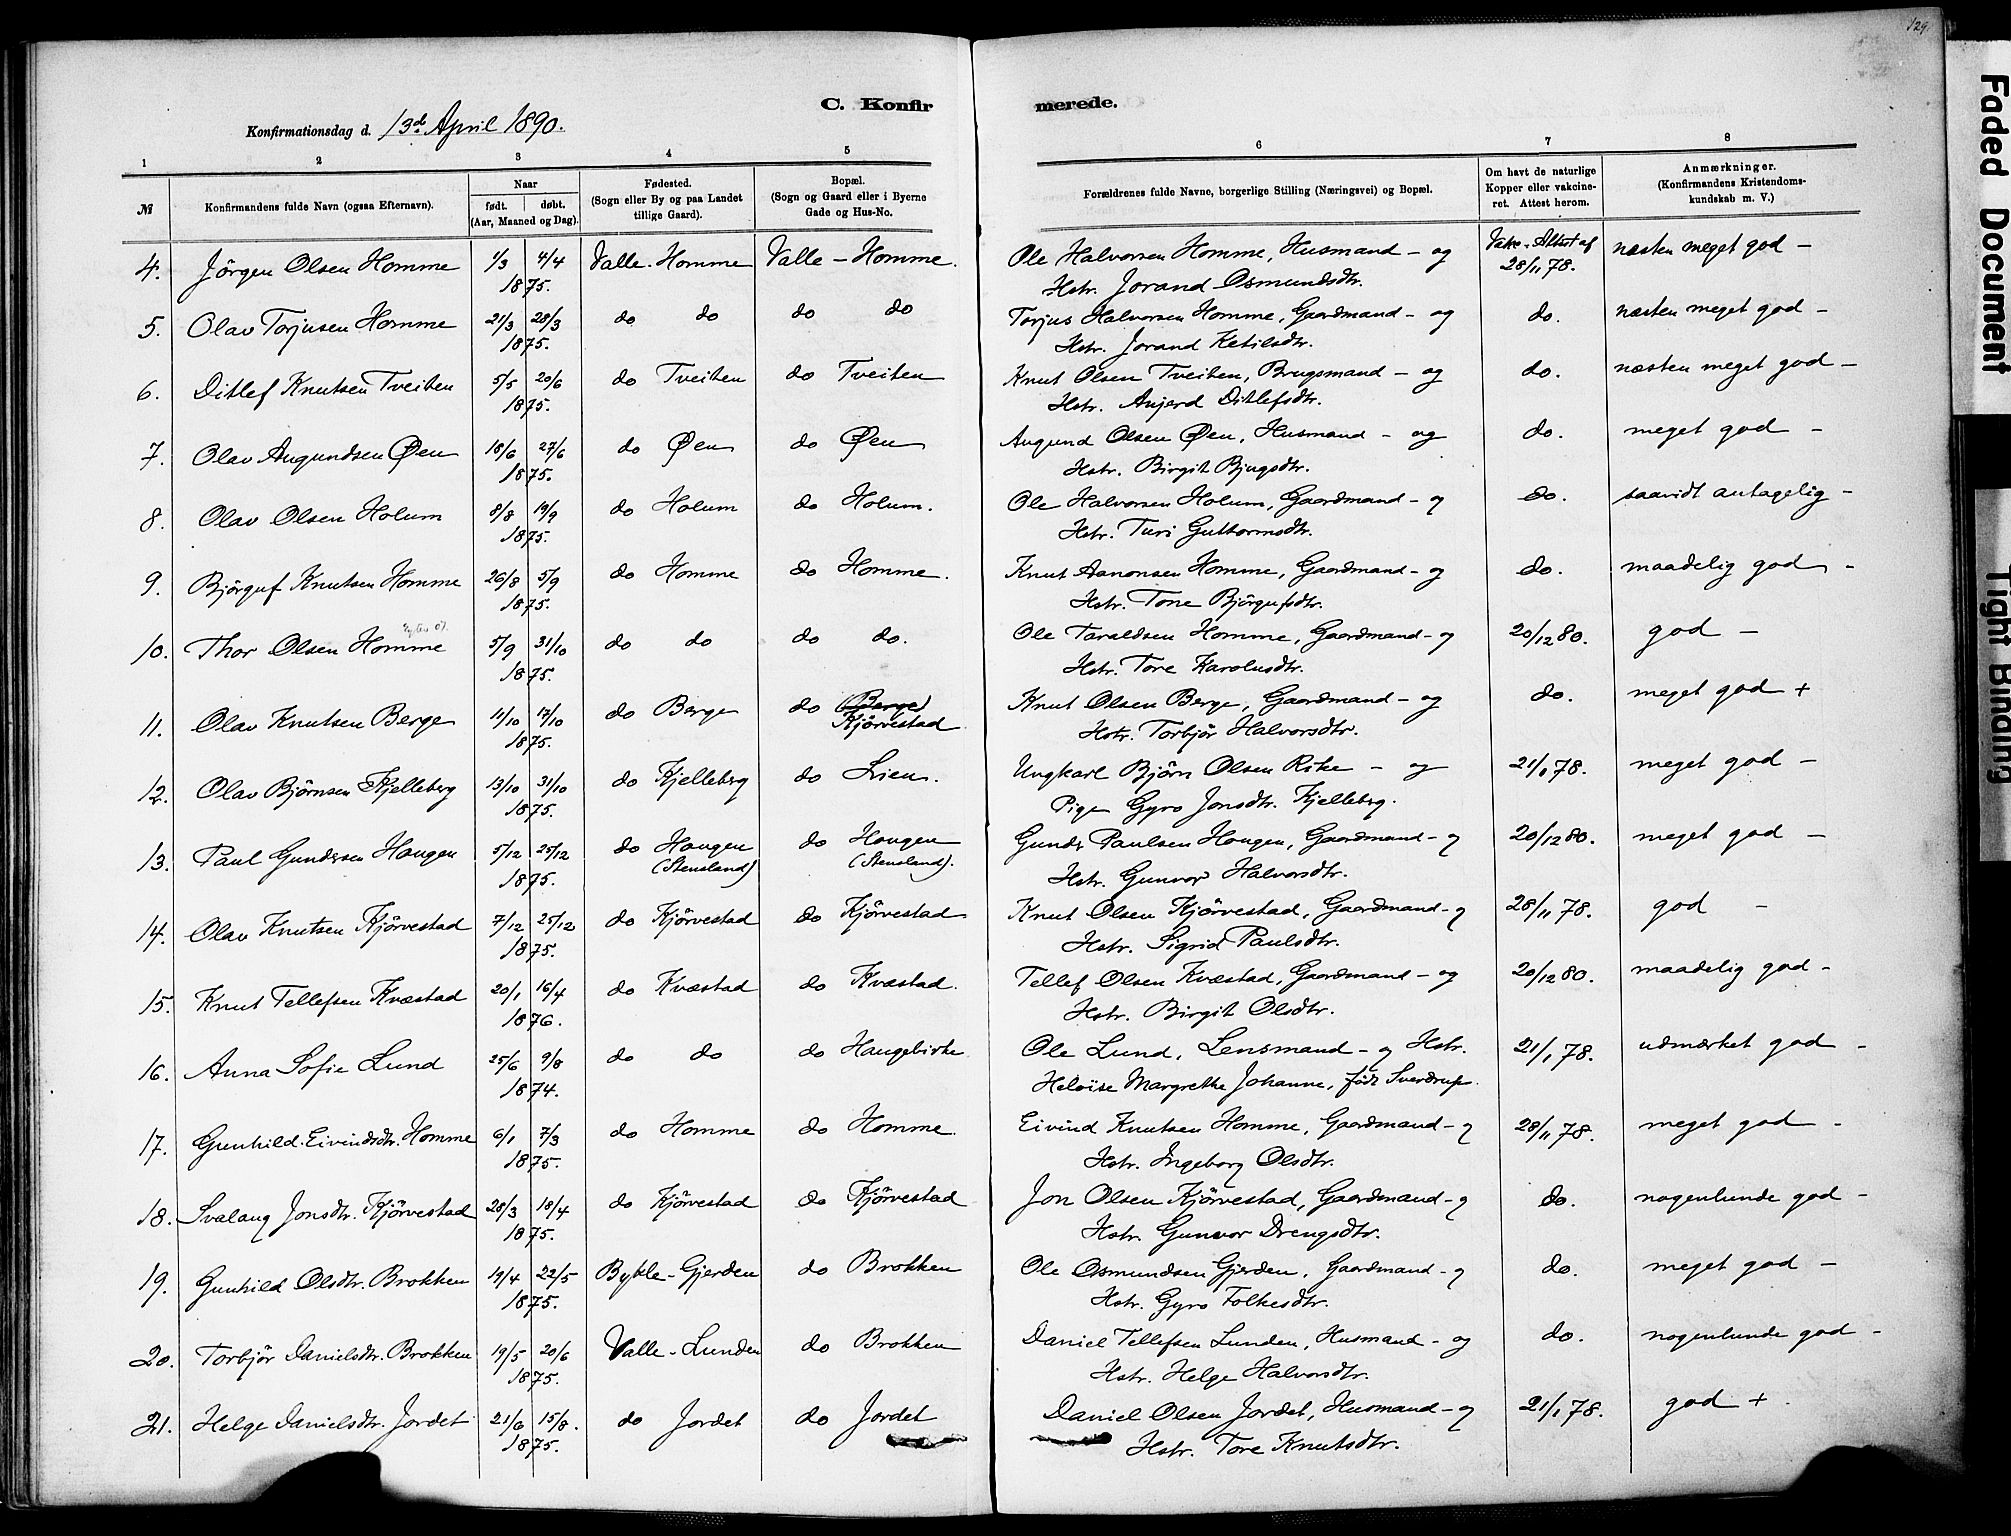 129.
C. Konfirmerede.
Konfirmationsdag d. 13de April 1890.
1 2 3 4 5 6 7 8
№
Konfirmandens fulde Navn (ogsaa Efternavn).
Naar
født. døbt.
(Aar, Maaned og Dag).
Fødested.
(Sogn eller By og paa Landet
tillige Gaard).
Bopæl.
(Sogn og Gaard eller i Byerne
Gade og Hus-No.
Forældrenes fulde Navne, borgerlige Stilling (Næringsvei) og Bopæl.
Om havt de naturlige
Kopper eller vakcine-
ret. Attest herom.
Anmærkninger.
(Konfirmandens Kristendoms-
kundskab m. V.)
4. Jörgen Olsen Homme 1/3 4/4 Valle - Homme Valle - Homme. Ole Halvorsen Homme, Husmand - og Vakc. Attest af næsten meget god -
1875. Hstr. Jorand Osmundsdtr. 28/11 78.
5. Olav Torjusen Homme 21/3 28/3 do do do do Torjus Halvorsen Homme, Gaardmand - og do. næsten meget god -
1875. Hstr. Jorand Ketilsdtr.
6. Ditlef Knutsen Tveiten 5/5 20/6 do Tveiten do Tveiten Knut Olsen Tveiten, Brugsmand - og do. næsten meget god -
1875. Hstr. Anjerd Ditlefsdtr.
7. Olav Augundsen Øen 18/6 27/6 do Øen do Øen Augund Olsen Øen, Husmand - og do. meget god -
1875. Hstr. Birgit Bjugsdtr.
8. Olav Olsen Holum 8/8 19/9 do Holum do Holum. Ole Halvorsen Holum, Gaardmand - og do. saavidt antagelig -
1875. Hstr. Turi Guttormsdtr.
9. Björguf Knutsen Homme 26/8 5/9 do Homme do Homme. Knut Aanonsen Homme, Gaardmand - og do. maadelig god -
1875. Hstr. Tone Björgufsdtr.
10. Thor Olsen Homme 5/9 31/10 do do do do. Ole Taraldsen Homme, Gaardmand - og 20/12 80. god -
1875. Hstr. Tore Karolusdtr.
11. Olav Knutsen Berge 11/10 17/10 do Berge do (Berge) Knut Olsen Berge, Gaardmand - og do. meget god +
Kjörvestad
1875. Hstr. Torbjör Halvorsdtr.
12. Olav Björnsen Kjelleberg 13/10 31/10 do Kjelleberg do Lien. Ungkarl Björn Olsen Rike - og 21/1 78. meget god -
1875. Pige Gyro Jonsdtr. Kjelleberg.
13. Paul Gundersen Haugen 5/12 25/12 do Haugen do Haugen Gunder Paulsen Haugen, Gaardmand - og 20/12 80. meget god -
(Stensland) (Stensland).
1875. Hstr. Gunvor Halvorsdtr.
14. Olav Knutsen Kjörvestad 7/12 25/12 do Kjörvestad do Kjörvestad Knut Olsen Kjörvestad, Gaardmand - og 28/11 78. god -
1875. Hstr. Sigrid Paulsdtr.
15. Knut Tellefsen Kvæstad 20/1 16/4 do Kvæstad do Kvæstad. Tellef Olsen Kvæstad, Gaardmand - og 20/12 80. maadelig god -
1876. Hstr. Birgit Olsdtr.
16. Anna Sofie Lund 25/6 9/8 do do do Haugebirke Ole Lund, Lensmand - og Hstr. 21/1 78. udmærket god -
1874. Heloise Margrethe Johanne, född Sverdrup.
17. Gunhild Eivindsdtr. Homme 6/1 7/3 do Homme do Homme. Eivind Knutsen Homme, Gaardmand - og 28/11 78. meget god -
1875. Hstr. Ingeborg Olsdtr.
18. Svalaug Jonsdtr. Kjörvestad 28/3 18/4 do Kjörvestad do Kjörvestad Jon Olsen Kjörvestad, Gaardmand - og do. nogenlunde god -
1875. Hstr. Gunvor Drengsdtr.
19. Gunhild Olsdtr. Brokken 19/4 22/5 Bykle - Gjerden do Brokken Ole Osmundsen Gjerden, Gaardmand - og do. meget god -
1875. Hstr. Gyro Folkesdtr.
20. Torbjör Danielsdtr. Brokken 19/5 20/6 Valle - Lunden do Brokken Daniel Tellefsen Lunden, Husmand - og do. nogenlunde god -
1875. Hstr. Helge Halvorsdtr.
21. Helge Danielsdtr. Jordet 21/6 15/8. do Jordet do Jordet Daniel Olsen Jordet, Husmand - og 21/1 78. god +
1875. Hstr. Tore Knutsdtr.
Faded Document
Tight Binding